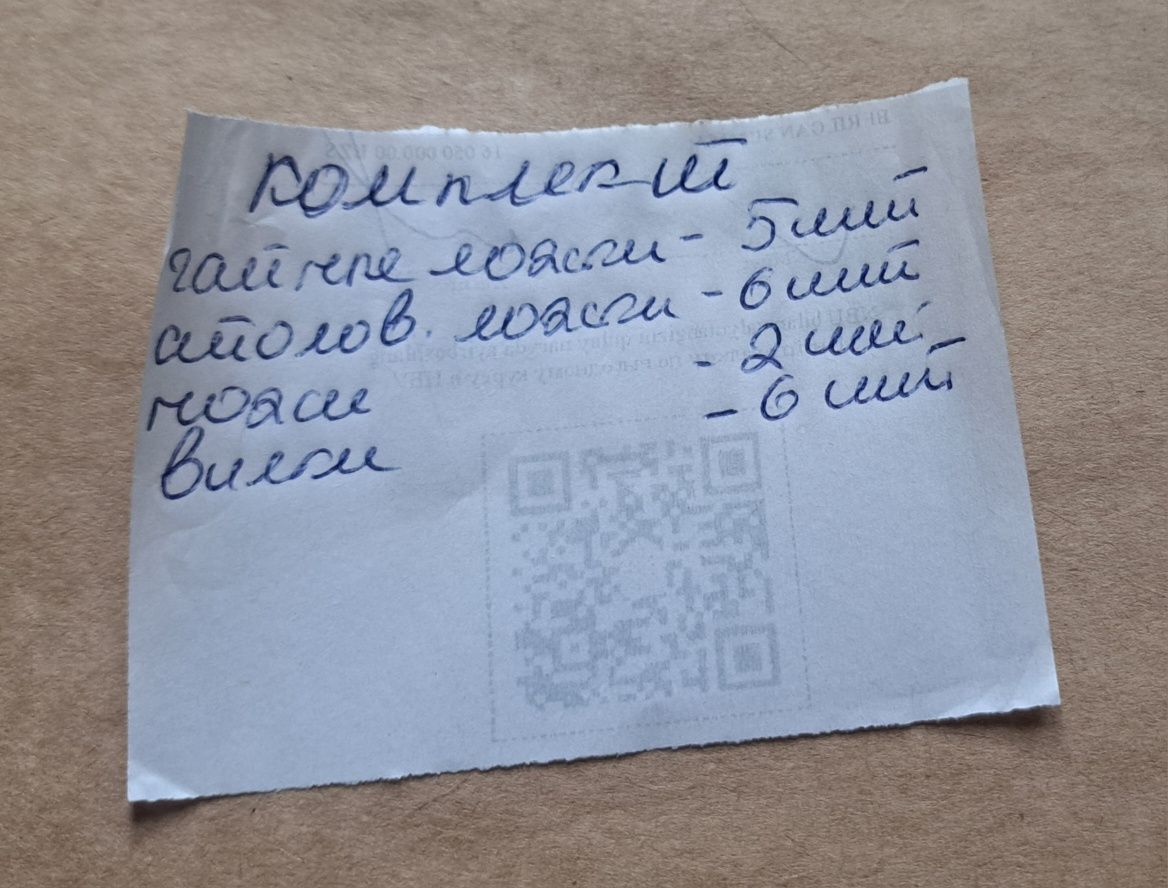 комплект
чайные ложки - 5 шт
столов. ложки - 6 шт
ножи - 2 шт.
вилки - 6 шт